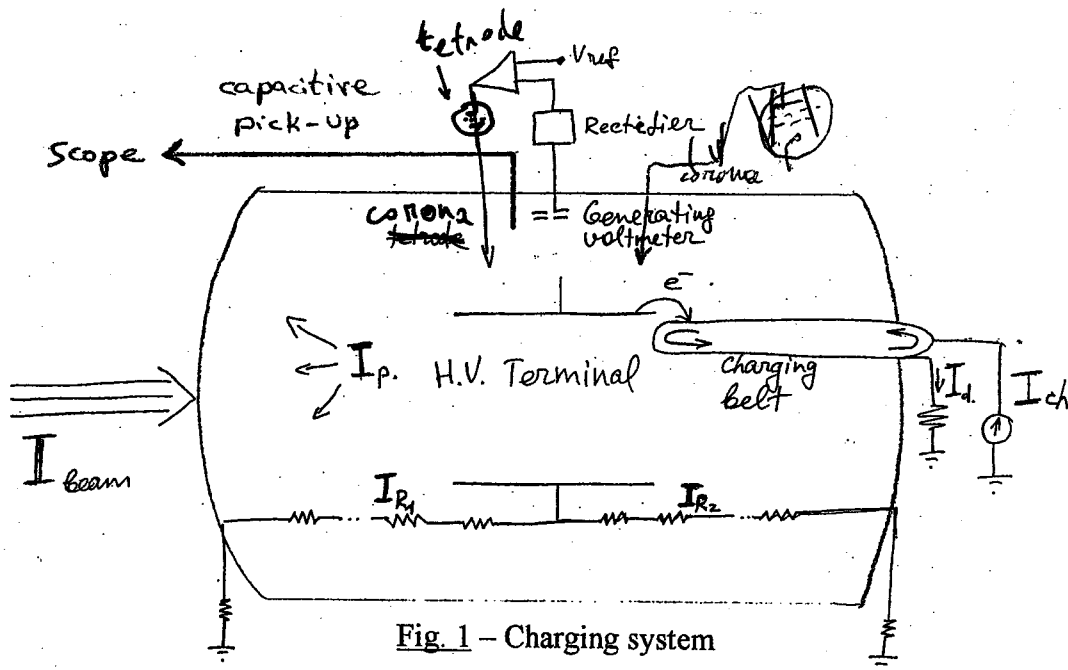 tetrode
Vref
capacitive
pick-up
Rectifier
Scope
corona
corona
tetrode
Generating
voltmeter
e⁻
I p.
H.V. Terminal
charging
belt
I d.
I ch
I beam
I R1
I R2
Fig. 1 – Charging system